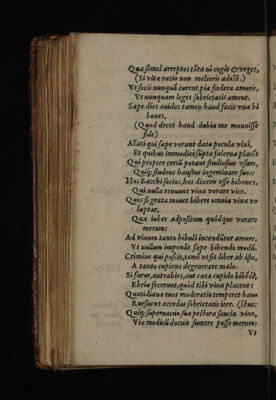 Quæ semel arreptos tāta ui cogit & vrget,
(Si vitæ ratio non melioris adest.)
Vt socij nunquā curent pia fœdera amoris,
Vt nunquam leges sobrietatis ament.
Sæpe dies auidos tamen haud facit vna bi
bones,
(Quod decet haud dubia me monuisse
fide)
Allati qui sæpe vorant data pocula vini,
Et quibus immodicè sūpta falerna placēt
Qui propter cereū potant studiosius vsum,
Quiq; student haustus ingeminare suos:
Hos Bacchi socios, hos dixeris esse bibones,
Qui nulla renuunt vina vorare vice.
Quos si grata mouet bibere omnia vina vo
luptas,
Quæ iubet adpositum quódque vorare
merum:
Ad vinum tanto bibuli incendūtur amore,
Vt nullum imponāt sæpe bibendo modū.
Crimine qui positis, tamē vt sit liber ab isto,
A tanto cupiens degenerare malo.
Si furor, aut rabies, aut cæca cupido bibēdi,
Ebria fecerunt, quòd tibi vina placent:
Quotidiana tuos moderatio temperet haust
Rursus vt accedas sobrietatis iter. (stus:
Quiq; superuacuo sua pectora saucia vino,
Vix modicū docuit sumere posse merum:
Vt